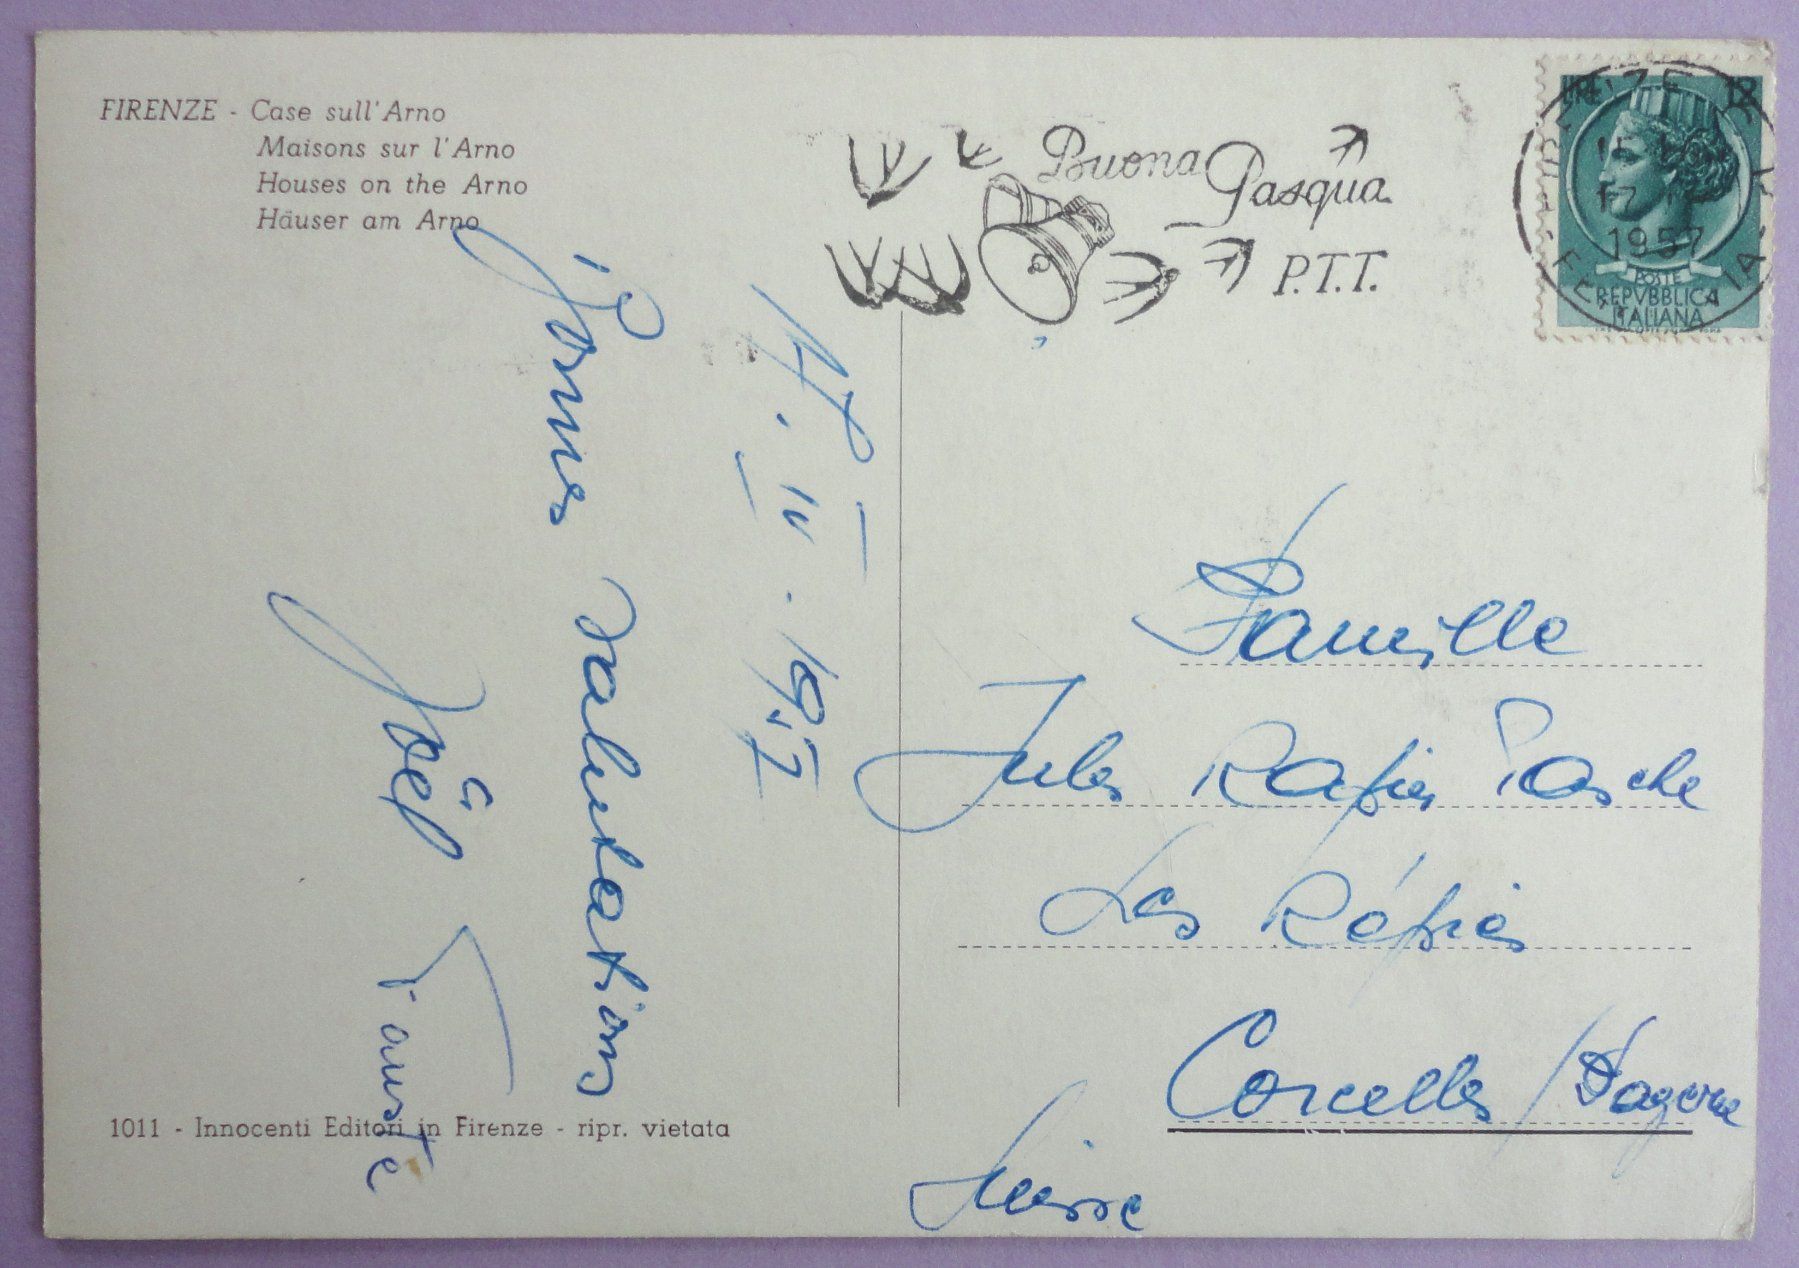 FIRENZE - Case sull'Arno
Maisons sur l'Arno
Houses on the Arno
Häuser am Arno
Buona Pasqua
P.T.T.
LIRE 12
1957
POSTE
REPVBBLICA
ITALIANA
17. IV. 1957
Bonnes salutations
Joël
Fauste
Famille
Jules Rapin Pasche
Les Rapies
Corcelles / Payerne
Suisse
1011 - Innocenti Editori in Firenze - ripr. vietata